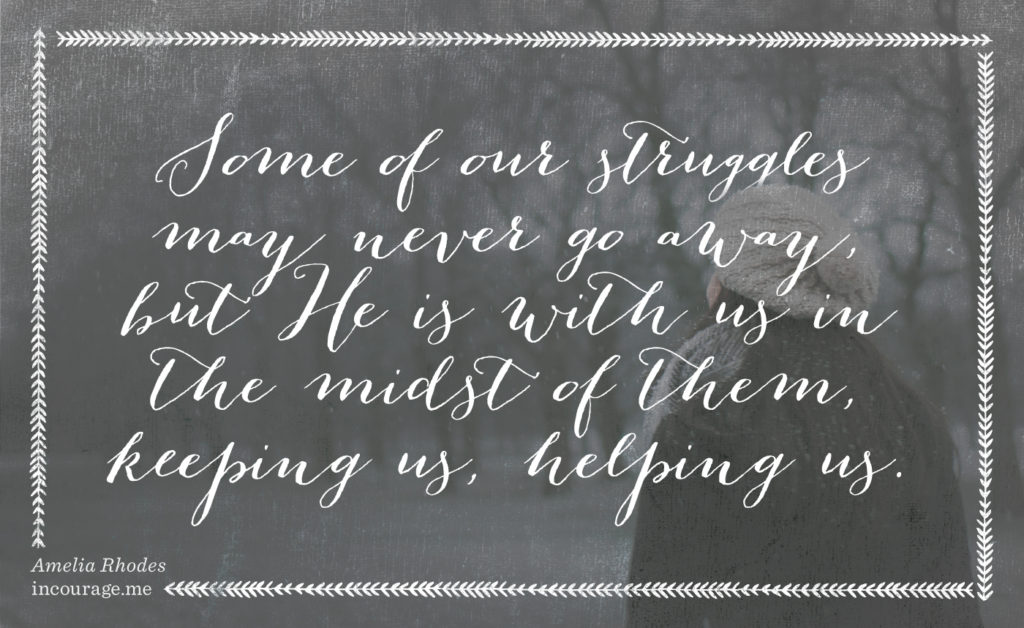 Some of our struggles
may never go away,
but He is with us in
the midst of them,
keeping us, helping us.
Amelia Rhodes
incourage.me